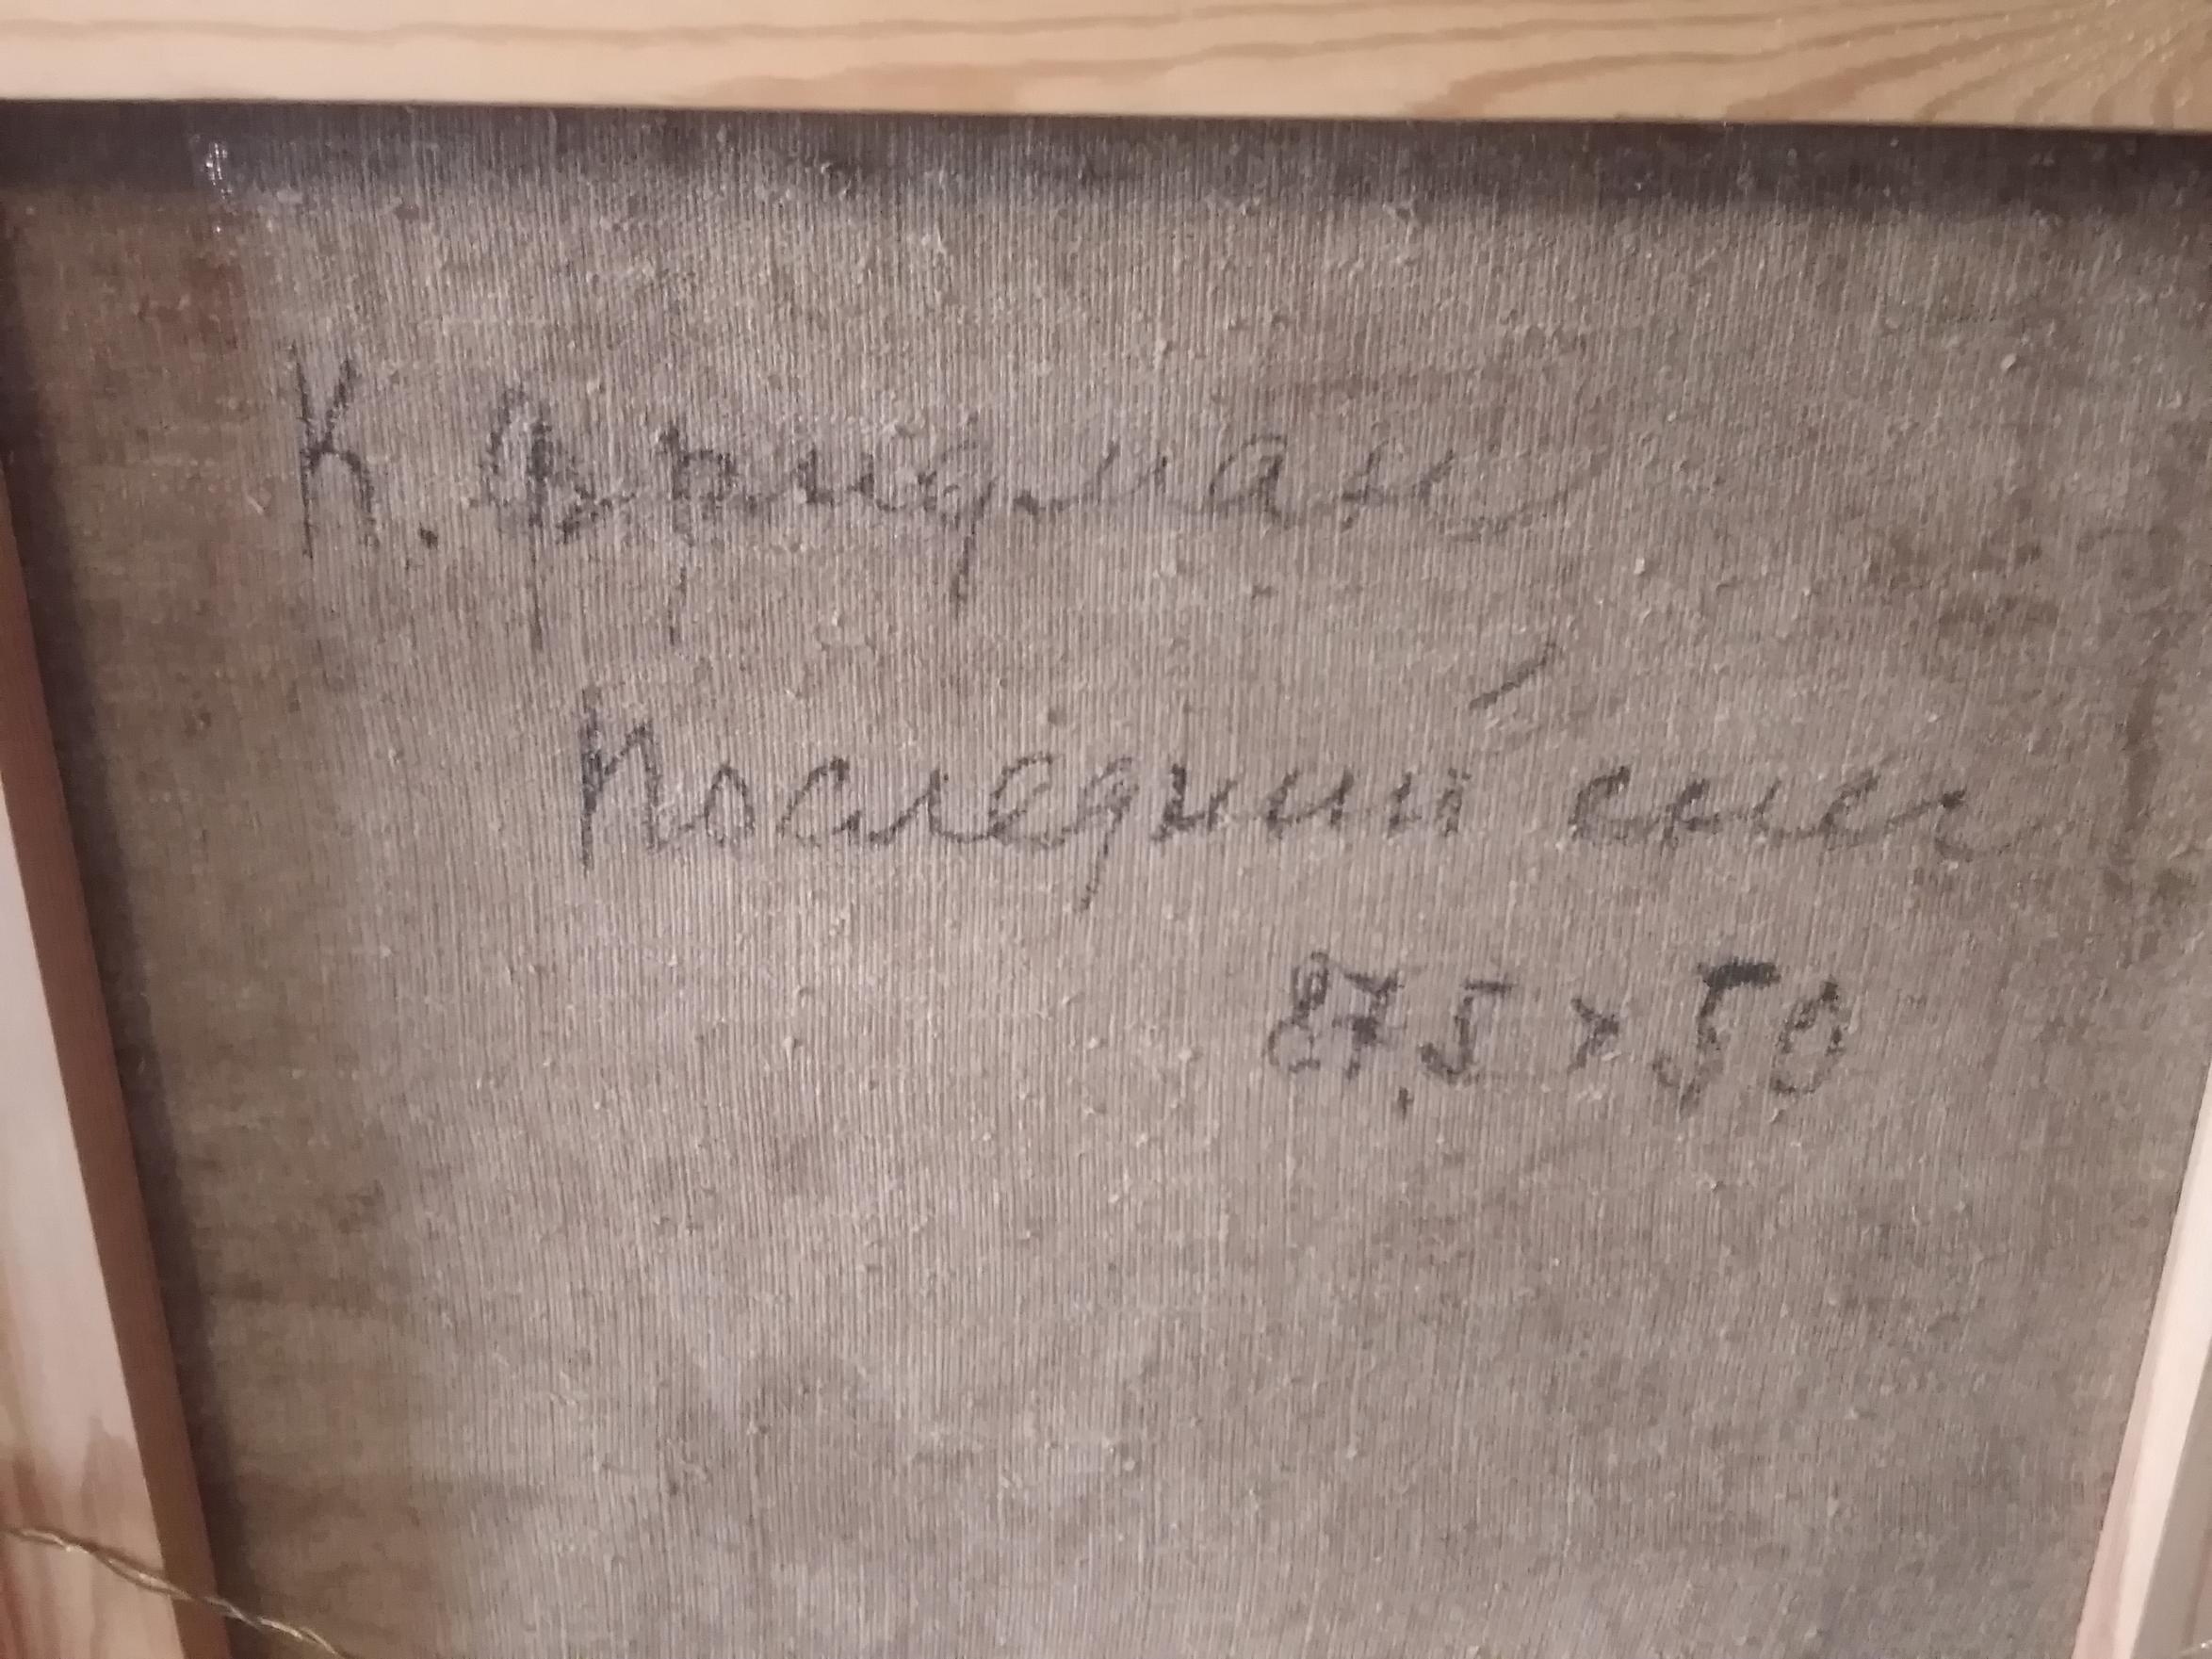 К. Фридман
Последний снег
87,5 x 50